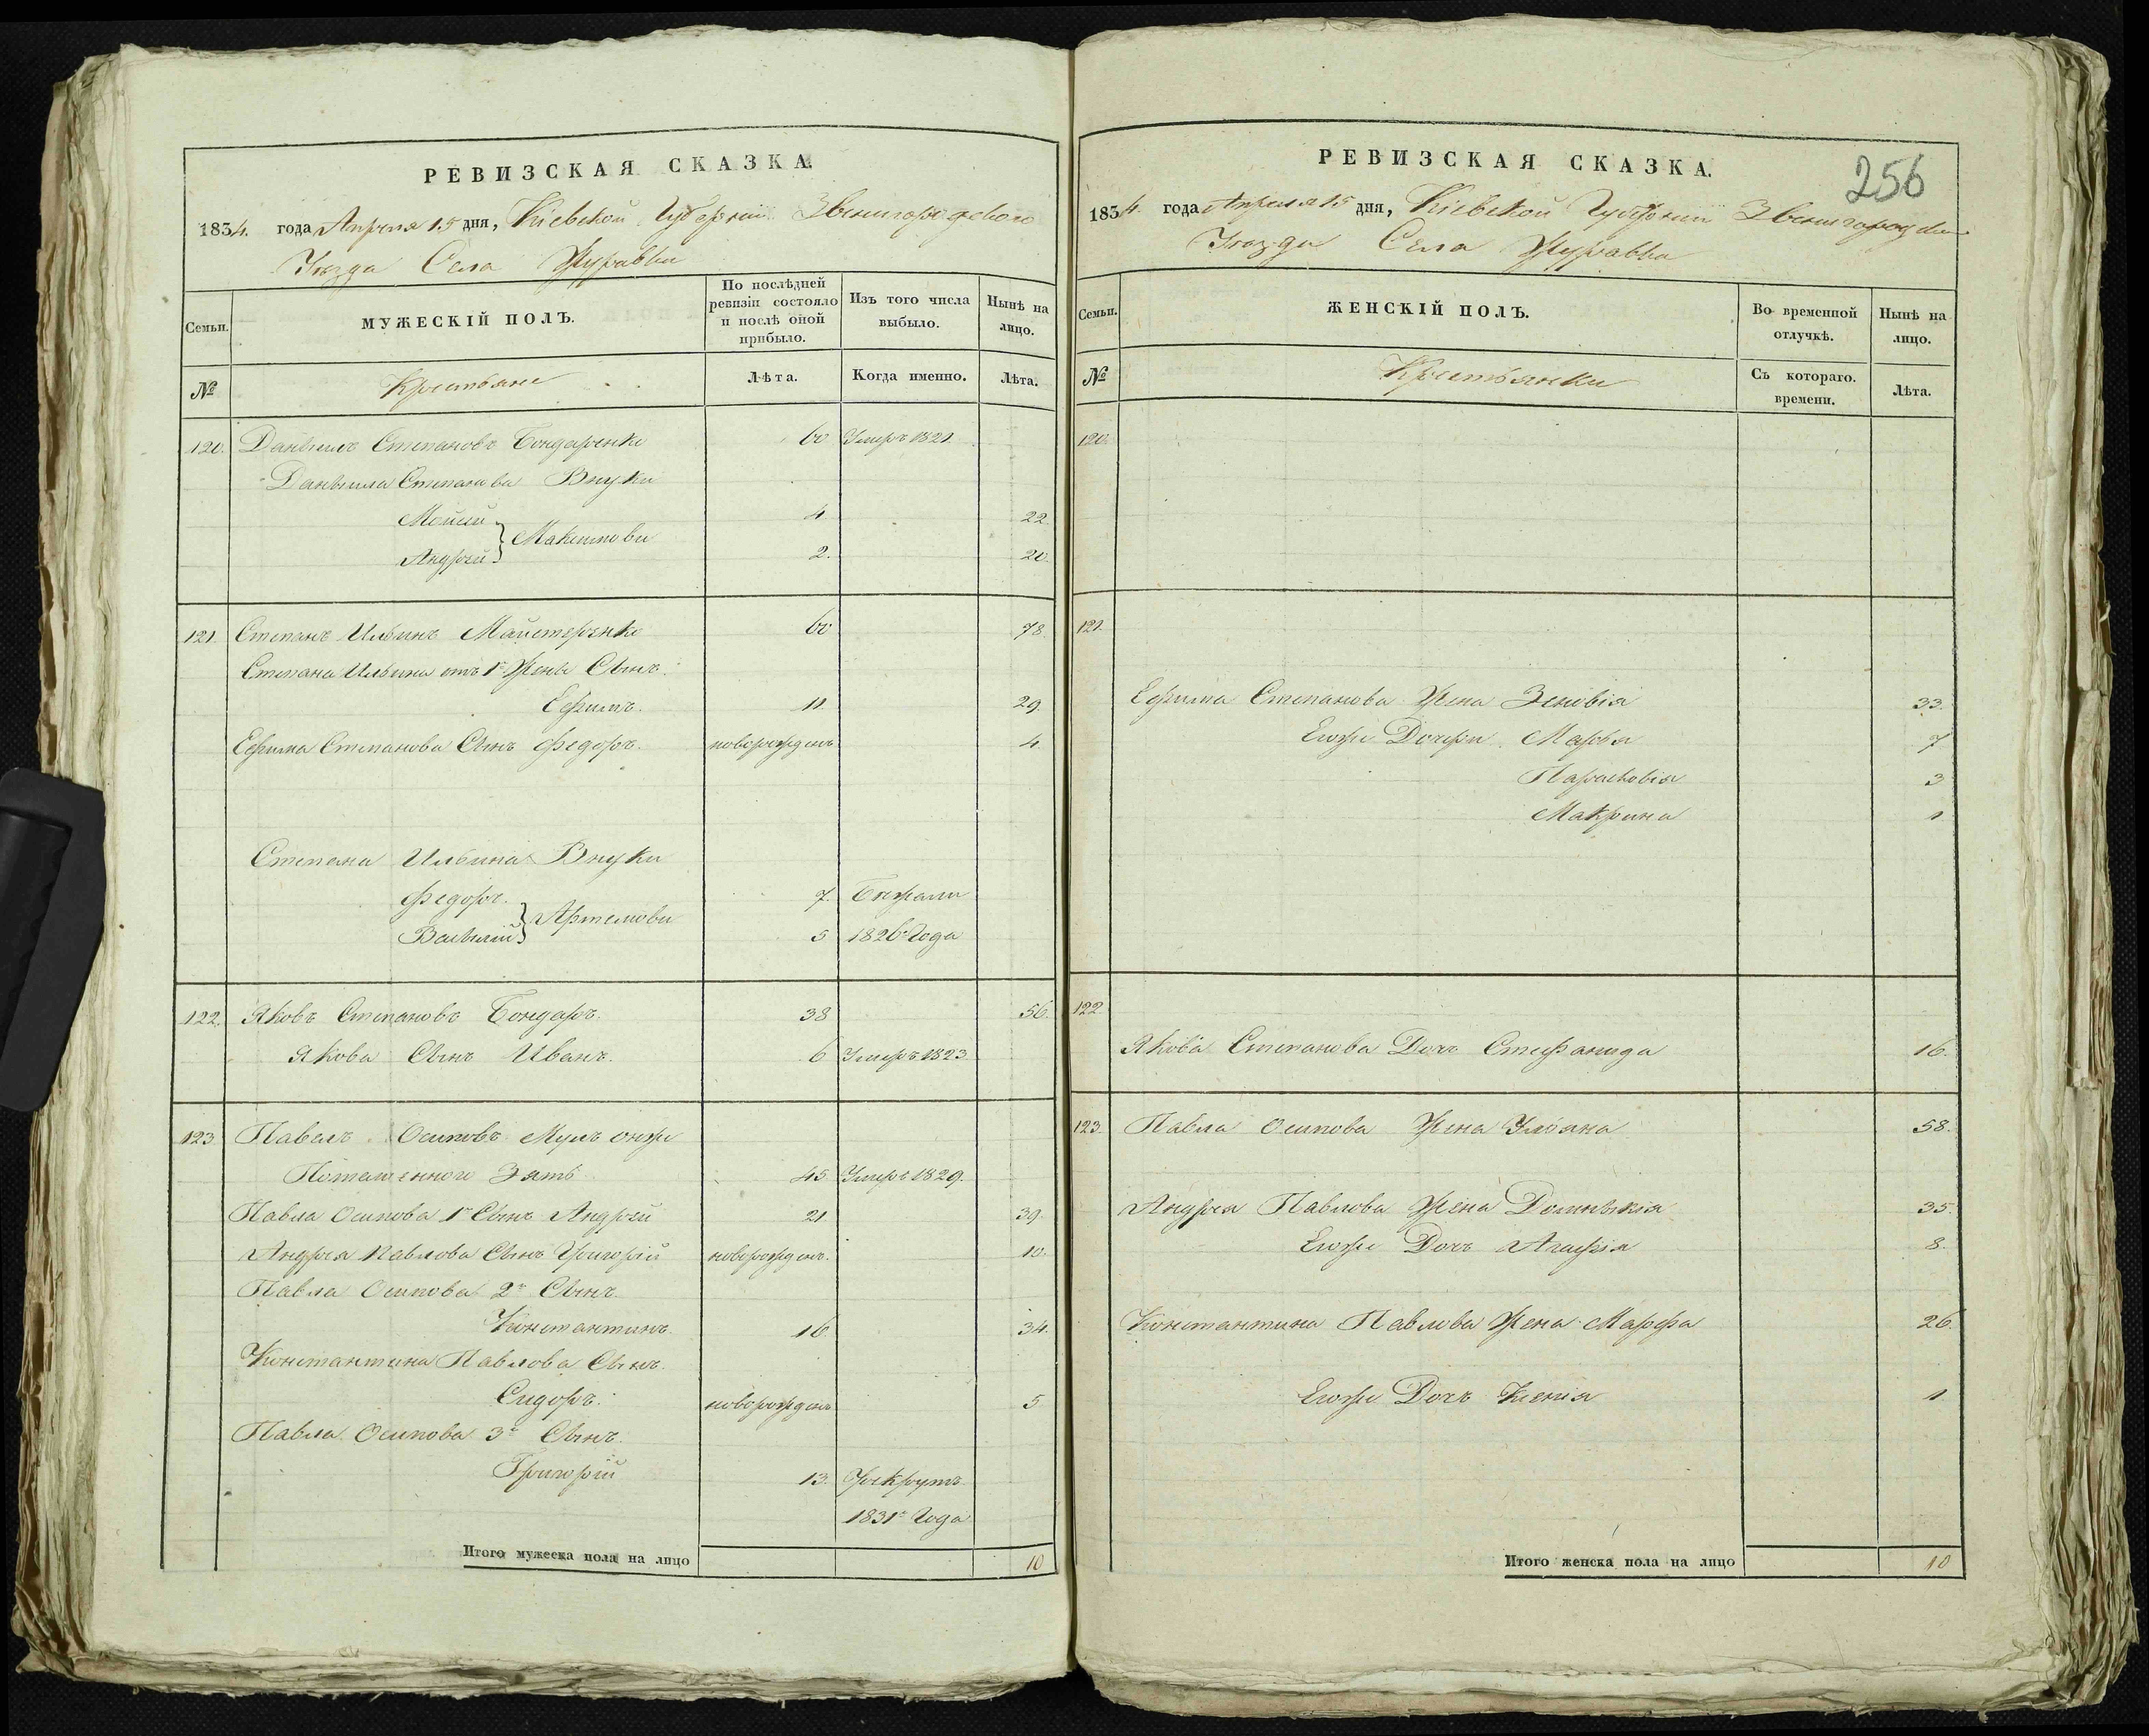 РЕВИЗСКАЯ СКАЗКА.
1834. года Апреля 15 дня, Кіевской Губерніи Звенигородского
Уѣзда Села Журавки
Семьи.
МУЖЕСКІЙ ПОЛЪ.
По послѣдней ревизіи состояло и послѣ оной прибыло.
Изъ того числа выбыло.
Нынѣ на лицо.
№
Крестьяне
Лѣта.
Когда именно.
Лѣта.
120. Даныилъ Степановъ Бондаренко 60 Умеръ 1821
Даныила Степанова Внуки
Мойсей 4 22.
Максимовы
Андрей 2. 20.
121. Степанъ Ильинъ Майстеренко 60 78.
Степана Ильина отъ 1й Жены Сынъ
Ефимъ. 11. 29.
Ефима Степанова Сынъ Федоръ. новорожденъ 4.
Степана Ильина Внуки
Федоръ. 7. Бежали
Артемовы
Василий 5 1826 Года
122. Яковъ Степановъ Бондаръ. 38 56.
Якова Сынъ Иванъ. 6 Умеръ 1823
123 Павелъ Осиповъ онже
Зять 45. Умеръ 1829.
Павла Осипова 1й Сынъ Андрей 21 39.
Андрея Павлова Сынъ Григорій новорожденъ. 10.
Павла Осипова 2й Сынъ
Константинъ 16 34.
Константина Павлова Сынъ
Сидоръ. новорожденъ 5
Павла Осипова 3й Сынъ
Григорій 13. Рекрутъ
1831го Года
Итого мужеска пола на лицо 10
256
РЕВИЗСКАЯ СКАЗКА.
1834. года Апреля 15 дня, Кіевской Губерніи
Уѣзда Села Журавки
Семьи.
ЖЕНСКІЙ ПОЛЪ.
Во временной отлучкѣ.
Нынѣ на лицо.
№
Крестьянки
Съ котораго. времени.
Лѣта.
120.
121.
Ефима Степанова Жена Зеновія 33.
Егоже Дочери Марья 7
Парасковія 3
Макрина 1
122
Якова Степанова Дочь Стефанида 16.
123. Павла Осипова Жена Ульяна 58.
Андрея Павлова Жена Доминикія 35.
Егоже Дочь Агафія 8.
Константина Павлова Жена Марфа 26.
Егоже Дочь Ксенія 1
Итого женска пола на лицо 10